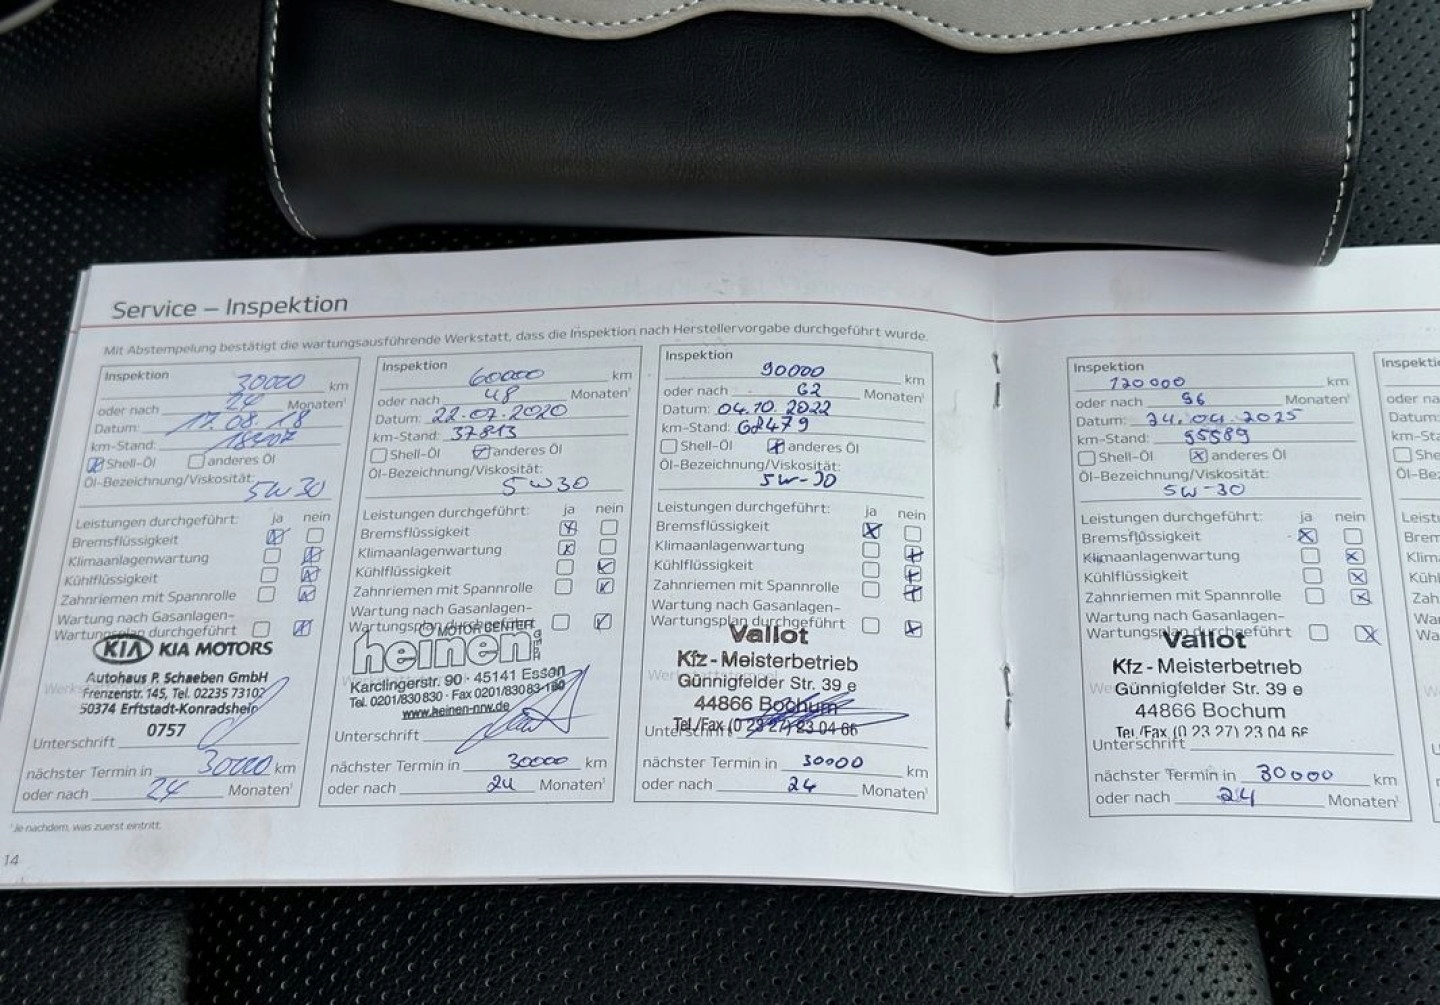 Service – Inspektion
Mit Abstempelung bestätigt die wartungsausführende Werkstatt, dass die Inspektion nach Herstellervorgabe durchgeführt wurde.
Inspektion
30000 km
oder nach 24 Monaten¹
Datum: 17.08.18
km-Stand:
Shell-Öl anderes Öl
Öl-Bezeichnung/Viskosität:
5W30
Leistungen durchgeführt: ja nein
Bremsflüssigkeit
Klimaanlagenwartung
Kühlflüssigkeit
Zahnriemen mit Spannrolle
Wartung nach Gasanlagen-
Wartungsplan durchgeführt
KIA KIA MOTORS
Autohaus P. Schaeben GmbH
Frenzenstr. 145, Tel. 02235 73102
50374 Erftstadt-Konradsheim
0757
Unterschrift
nächster Termin in 30000 km
oder nach 24 Monaten¹
Inspektion
60000 km
oder nach 48 Monaten¹
Datum: 22.07.2020
km-Stand: 37813
Shell-Öl anderes Öl
Öl-Bezeichnung/Viskosität:
5W30
Leistungen durchgeführt: ja nein
Bremsflüssigkeit
Klimaanlagenwartung
Kühlflüssigkeit
Zahnriemen mit Spannrolle
Wartung nach Gasanlagen-
Wartungsplan durchgeführt
MOTOR CENTER
heinen
Karclingerstr. 90 · 45141 Essen
Tel. 0201/830 830 · Fax 0201/830 83-180
www.heinen-nrw.de
Unterschrift
nächster Termin in 30000 km
oder nach 24 Monaten¹
Inspektion
90000 km
oder nach 62 Monaten¹
Datum: 04.10.2022
km-Stand: 68479
Shell-Öl anderes Öl
Öl-Bezeichnung/Viskosität:
5W-30
Leistungen durchgeführt: ja nein
Bremsflüssigkeit
Klimaanlagenwartung
Kühlflüssigkeit
Zahnriemen mit Spannrolle
Wartung nach Gasanlagen-
Wartungsplan durchgeführt
Vallot
Kfz - Meisterbetrieb
Günnigfelder Str. 39 e
44866 Bochum
Tel./Fax (0 23 27) 23 04 66
Unterschrift
nächster Termin in 30000 km
oder nach 24 Monaten¹
¹Je nachdem, was zuerst eintritt.
14
Inspektion
120000 km
oder nach 96 Monaten¹
Datum: 24.04.2025
km-Stand: 95589
Shell-Öl anderes Öl
Öl-Bezeichnung/Viskosität:
5W-30
Leistungen durchgeführt: ja nein
Bremsflüssigkeit
Klimaanlagenwartung
Kühlflüssigkeit
Zahnriemen mit Spannrolle
Wartung nach Gasanlagen-
Wartungsplan durchgeführt
Vallot
Kfz - Meisterbetrieb
Günnigfelder Str. 39 e
44866 Bochum
Tel./Fax (0 23 27) 23 04 66
Unterschrift
nächster Termin in 30000 km
oder nach 24 Monaten¹